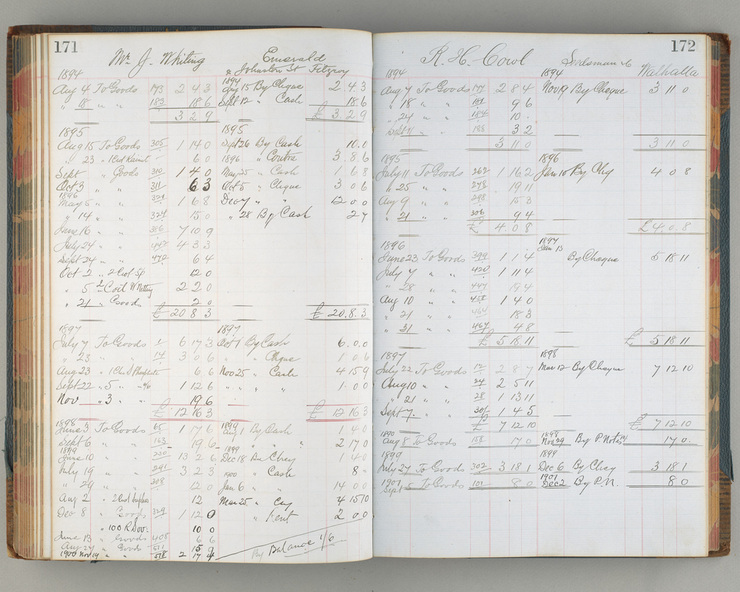 171
Mr J. Whiting
Emerald
Johnston St Fitzroy
1894
1894
Aug 4 To Goods 173 2 4 3
Aug 15 By Cheque 2 4 3
" 18 " " 182 18 6
Sept 12 " Cash 18 6
3 2 9
£ 3 2 9
1895
1895
Aug 15 To Goods 305 1 14 0
Sept 26 By Cash 10 0
" 23 " 6 0
1896 " Contra 3 8 6
Sept " Goods 310 1 4 0
May 25 " Cash 1 6 8
Oct 3 " " 311 6 3
Oct 5 " Cheque 3 0 6
1896
May 6 " " 1 6 8
Dec 7 " " 12 0 0
" 14 " " 324 15 0
" 28 By Cash 2 7
June 16 " " 7 10 9
July 24 " " 4 3 3
Sept 24 " " 6 4
Oct 2 12 0
" 5 2 2 0
" 21 " Goods 2 0
£ 20 8 3
£ 20 8 3
1897
1897
July 7 To Goods 6 17 3
Oct 1 By Cash 6 0 0
" 23 " 3 0 6
" Cheque 1 0 6
Aug 23 6 6
Nov 25 " Cash 4 15 9
Sept 22 1 12 6
" " " 1 0 0
Nov " 3 " 19 6
£ 12 16 3
£ 12 16 3
1898
1899
June 3 To Goods 1 7 6
Aug 1 By Cash 1 4 0
Sept 6 " " 19 6
" " 2 17 0
1899
1899
June 10 " " 220 13 2 6
Dec 18 By Cheq 1 4 0
July 19 " " 241 3 2 3
1900 " Cash 8
" 29 " " 258 12 0
Jan 6 " 14 0 0
Aug 2 12
Mar 25 " Cq 4 15 10
Dec 8 " Goods 329 1 12 0
" Rent 2 0 0
" 10 0
June 13 " Goods 405 6 6
Aug 27 " Goods 15 9
1900 Nov 19 " " 2 17 4
By Balance 1/6
172
R. H. Cowl
Walhalla
1894
1894
Aug 7 To Goods 2 8 4
Nov 19 By Cheque 3 11 0
" 18 " " 9 6
" 24 " " 184 10
Sept 11 " 188 3 2
3 11 0
3 11 0
1895
1896
July 11 To Goods 262 1 16 2
Jan 10 By Chq 4 0 8
" 25 " " 278 19 11
Aug 9 " " 298 15 3
" 21 " " 306 9 4
£ 4 0 8
£ 4 0 8
1896
1897
Jan 13
June 23 To Goods 399 1 1 4
By Cheque 5 18 11
July 7 " " 420 1 11 4
" 28 " " 447 19 4
Aug 10 " " 457 1 4 0
" 21 " " 18 3
" 31 " 467 4 8
£ 5 18 11
£ 5 18 11
1897
1898
July 22 To Goods 12 2 8 7
Mar 12 By Cheque 7 12 10
Aug 10 " " 24 2 5 11
" 21 " " 28 1 13 11
Sept 7 " 30 1 4 5
£ 7 12 10
£ 7 12 10
1898
1898
Aug 8 To Goods 158 17 0
Nov 29 By P Notes 17 0
1899
1899
July 27 To Goods 302 3 18 1
Dec 6 By Cheq 3 18 1
1901
1901
Sept 5 To Goods 101 8 0
Dec 2 By P.N. 8 0